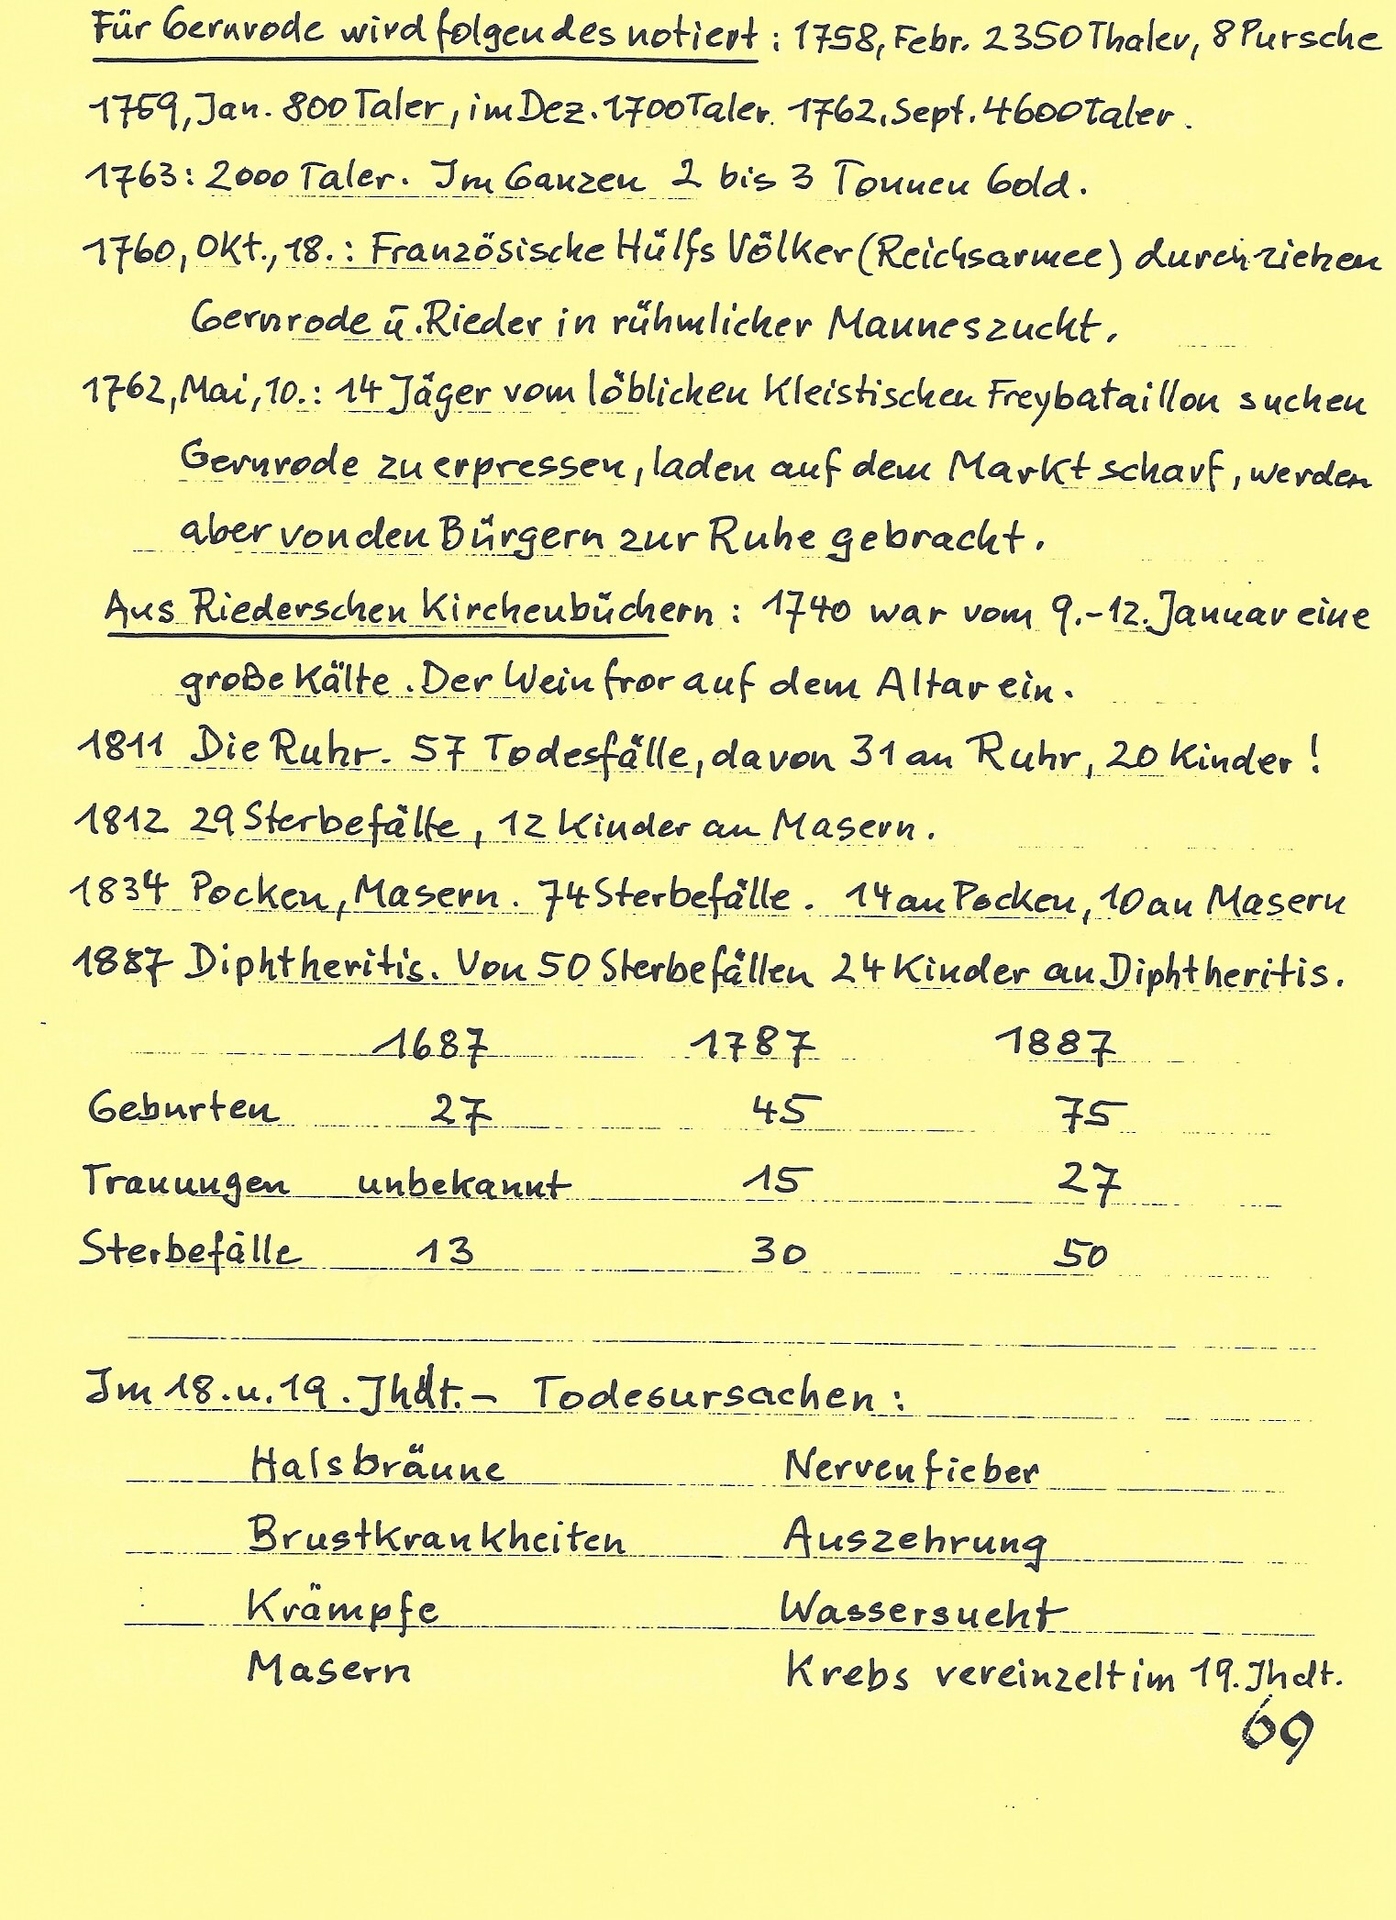 Für Gernrode wird folgendes notiert : 1758, Febr. 2350 Thaler, 8 Pursche
1759, Jan. 800 Taler, im Dez. 1700 Taler. 1762, Sept. 4600 Taler.
1763: 2000 Taler. Im Ganzen 2 bis 3 Tonnen Gold.
1760, Okt., 18. : Französische Hülfs Völker (Reichsarmee) durchziehen
Gernrode ü. Rieder in rühmlicher Manneszucht.
1762, Mai, 10. : 14 Jäger vom löblichen Kleistischen Freybataillon suchen
Gernrode zu erpressen, laden auf dem Markt scharf, werden
aber von den Bürgern zur Ruhe gebracht.
Aus Riederschen Kirchenbüchern : 1740 war vom 9.-12. Januar eine
große Kälte. Der Wein fror auf dem Altar ein.
1811 Die Ruhr. 57 Todesfälle, davon 31 an Ruhr, 20 Kinder!
1812 29 Sterbefälle, 12 Kinder an Masern.
1834 Pocken, Masern. 74 Sterbefälle. 14 an Pocken, 10 an Masern
1887 Diphtheritis. Von 50 Sterbefällen 24 Kinder an Diphtheritis.
1687 1787 1887
Geburten 27 45 75
Trauungen unbekannt 15 27
Sterbefälle 13 30 50
Im 18. u. 19. Jhdt. - Todesursachen :
Halsbräune Nervenfieber
Brustkrankheiten Auszehrung
Krämpfe Wassersucht
Masern Krebs vereinzelt im 19. Jhdt.
69